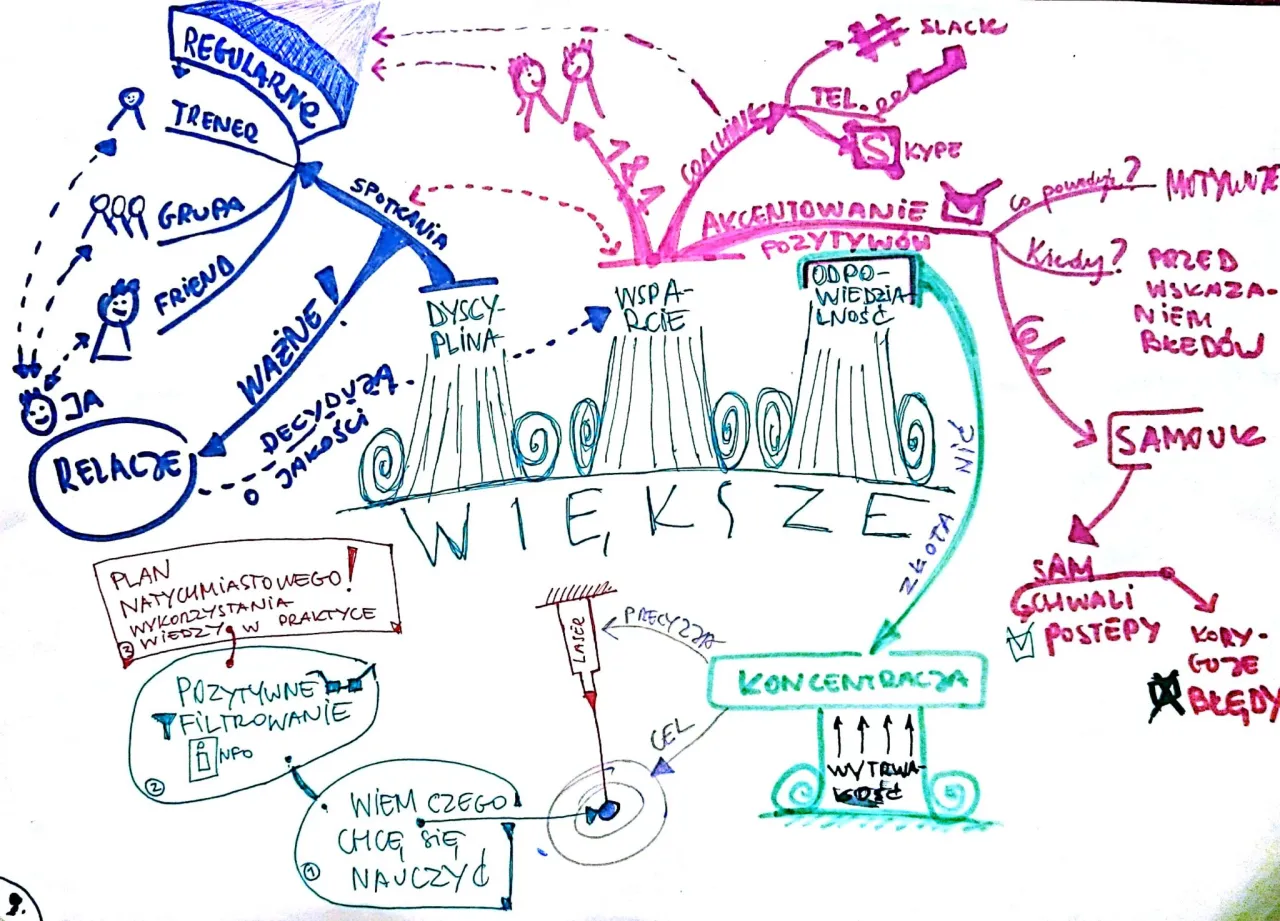 REGULARNE
TRENER
GRUPA
FRIEND
JA
SPOTKANIA
WAŻNE!
RELACJE
DECYDUJĄ
O JAKOŚCI
1&1
COACHING
SLACK
TEL.
SKYPE
AKCENTOWANIE
POZYTYWÓW
CO POWODUJE?
MOTYWUJE
Kiedy?
PRZED
WSKAZA-
NIEM
BŁĘDÓW
CEL
SAMOUK
SAM
CHWALI
POSTĘPY
KORY-
GUJE
BŁĘDY
DYSCY-
PLINA
WSPA-
RCIE
ODPO-
WIEDZIA-
LNOŚĆ
WIĘKSZE
ZŁOTA NIĆ
KONCENTRACJA
WYTRWA-
ŁOŚĆ
PRECYZJA
CEL
LASER
PLAN
NATYCHMIASTOWEGO!
WYKORZYSTANIA
WIEDZY W PRAKTYCE
3
POZYTYWNE
FILTROWANIE
INFO
2
WIEM CZEGO
CHCĘ SIĘ
NAUCZYĆ
1
9.